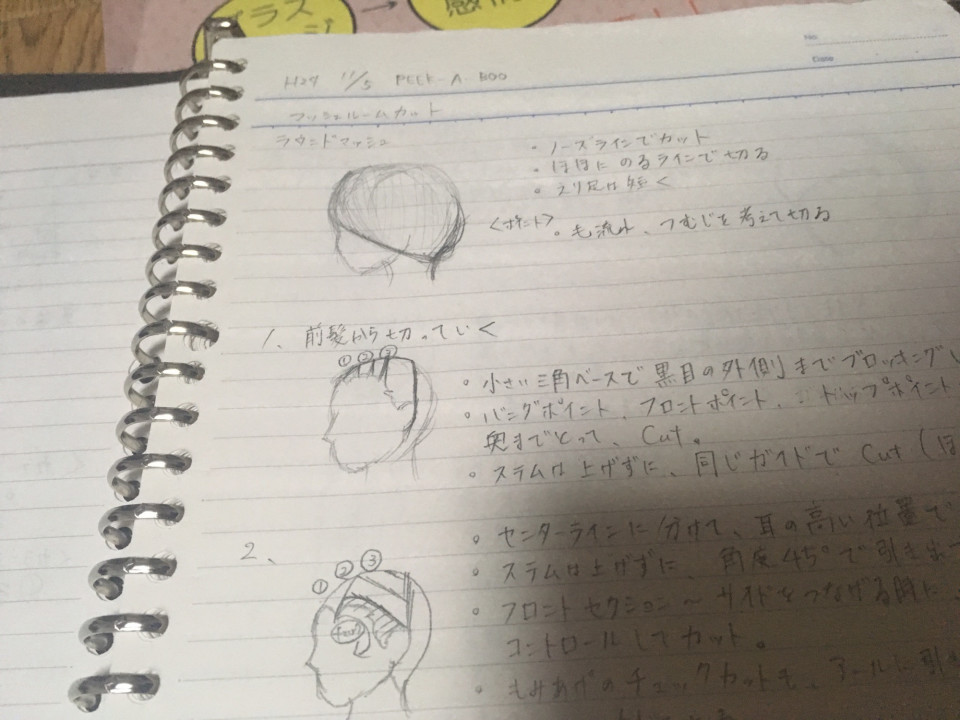 ラス
感
No.
Date
H27 11/5 PEEK-A-BOO
マッシュルームカット
ラウンドマッシュ
・ノーズラインでカット
・ほほにのるラインで切る
・えり足は短く
<ポイント>
・毛流れ、つむじを考えて切る
1、前髪から切っていく
① ② ③
・小さい三角ベースで黒目の外側までブロッキング
・バングポイント、フロントポイント、トップポイント
奥までとって、Cut。
・ステムは上げずに、同じガイドで Cut (ほ
2、
① ② ③
・センターラインに分けて、耳の高い位置で
・ステムは上げずに、角度45°で引き出
・フロントセクション〜サイドをつなげる時に、
コントロールしてカット。
・もみあげのチェックカットも、アールに引き